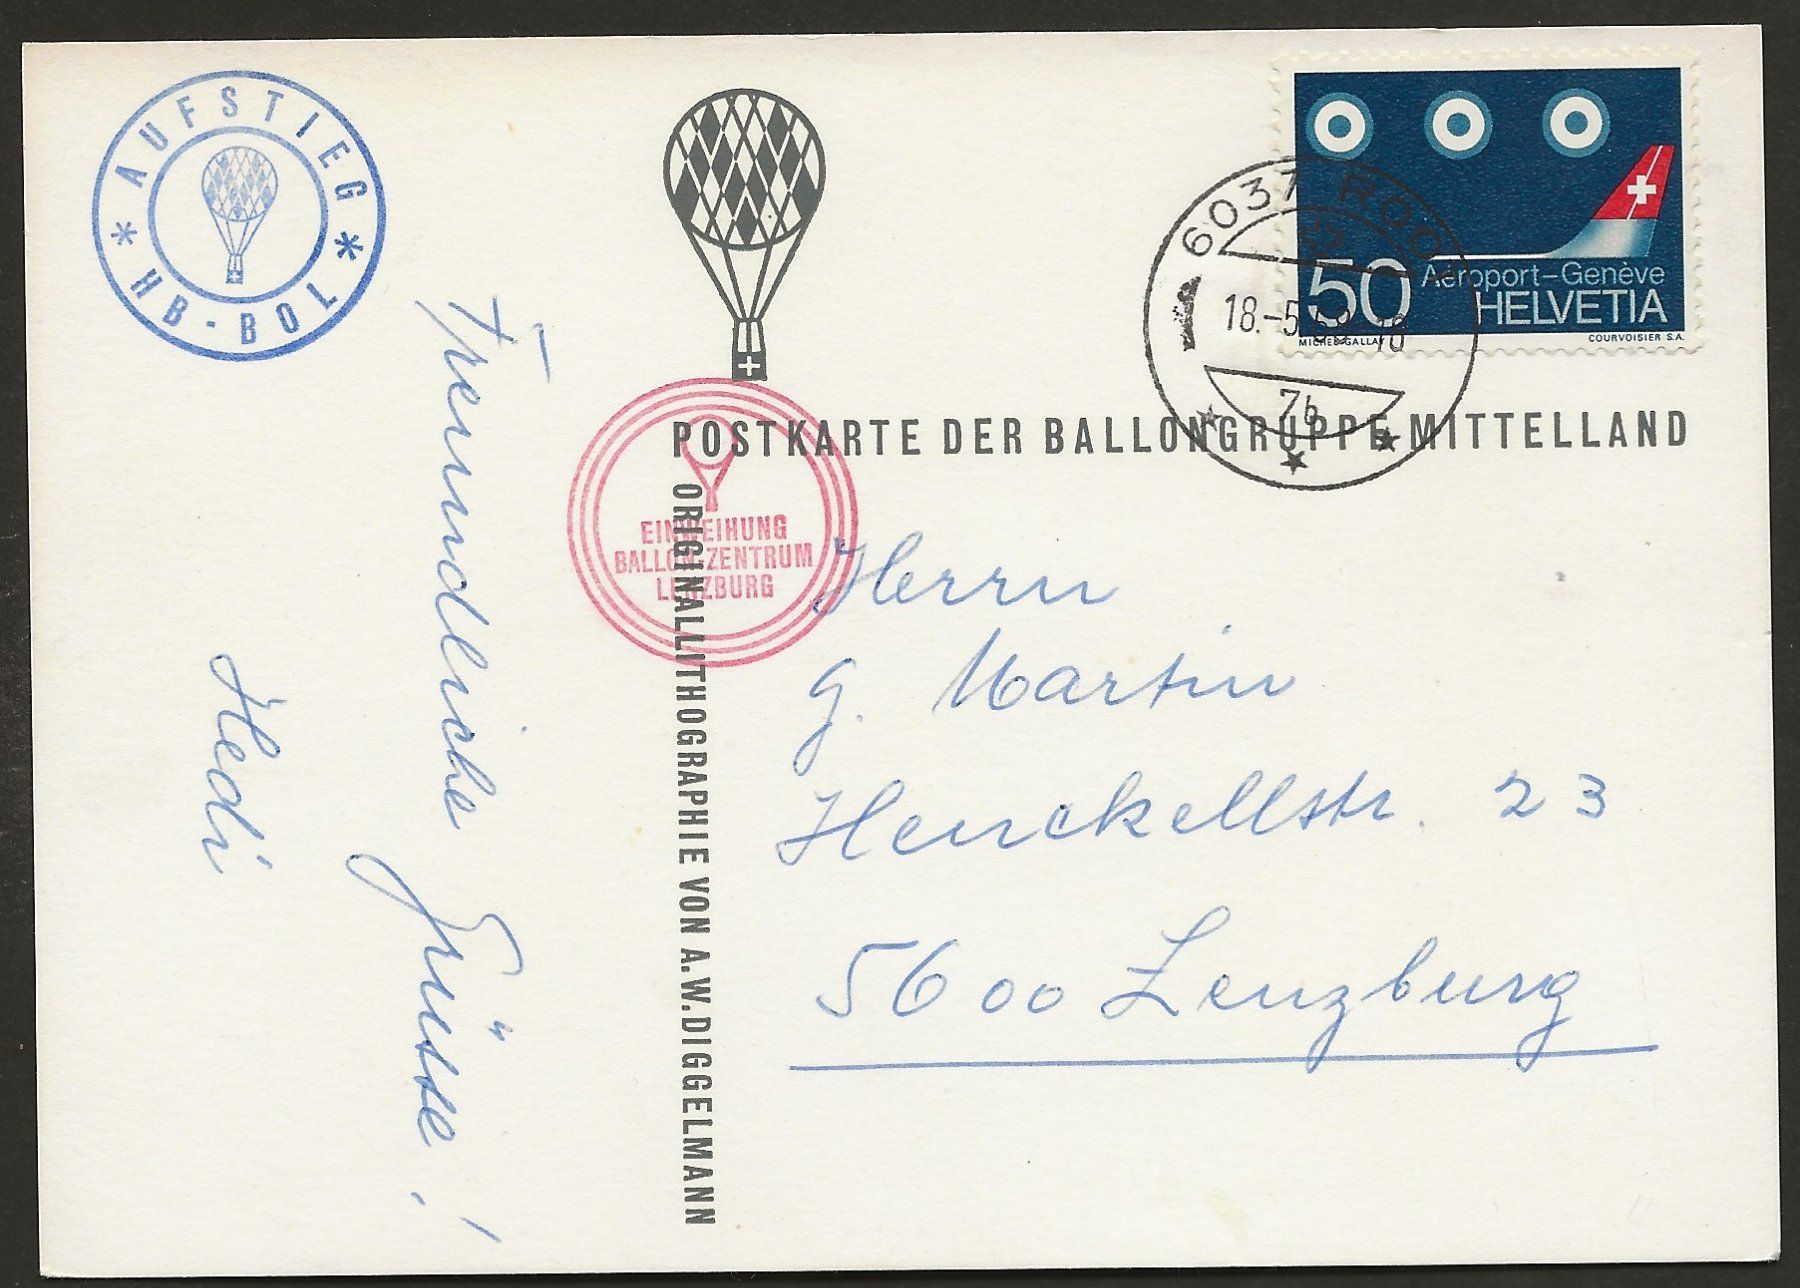 * AUFSTIEG *
HB-BOL
50
Aéroport-Genève
HELVETIA
MICHEL GALLAY
COURVOISIER S.A.
6037 ROOT
18.-5.69-18
7b
POSTKARTE DER BALLONGRUPPE MITTELLAND
EINWEIHUNG
BALLON-ZENTRUM
LENZBURG
ORIGINALLITHOGRAPHIE VON A.W.DIGGELMANN
Freundliche Grüsse!
Hedi
Herrn
G. Martin
Henckellstr. 23
5600 Lenzburg